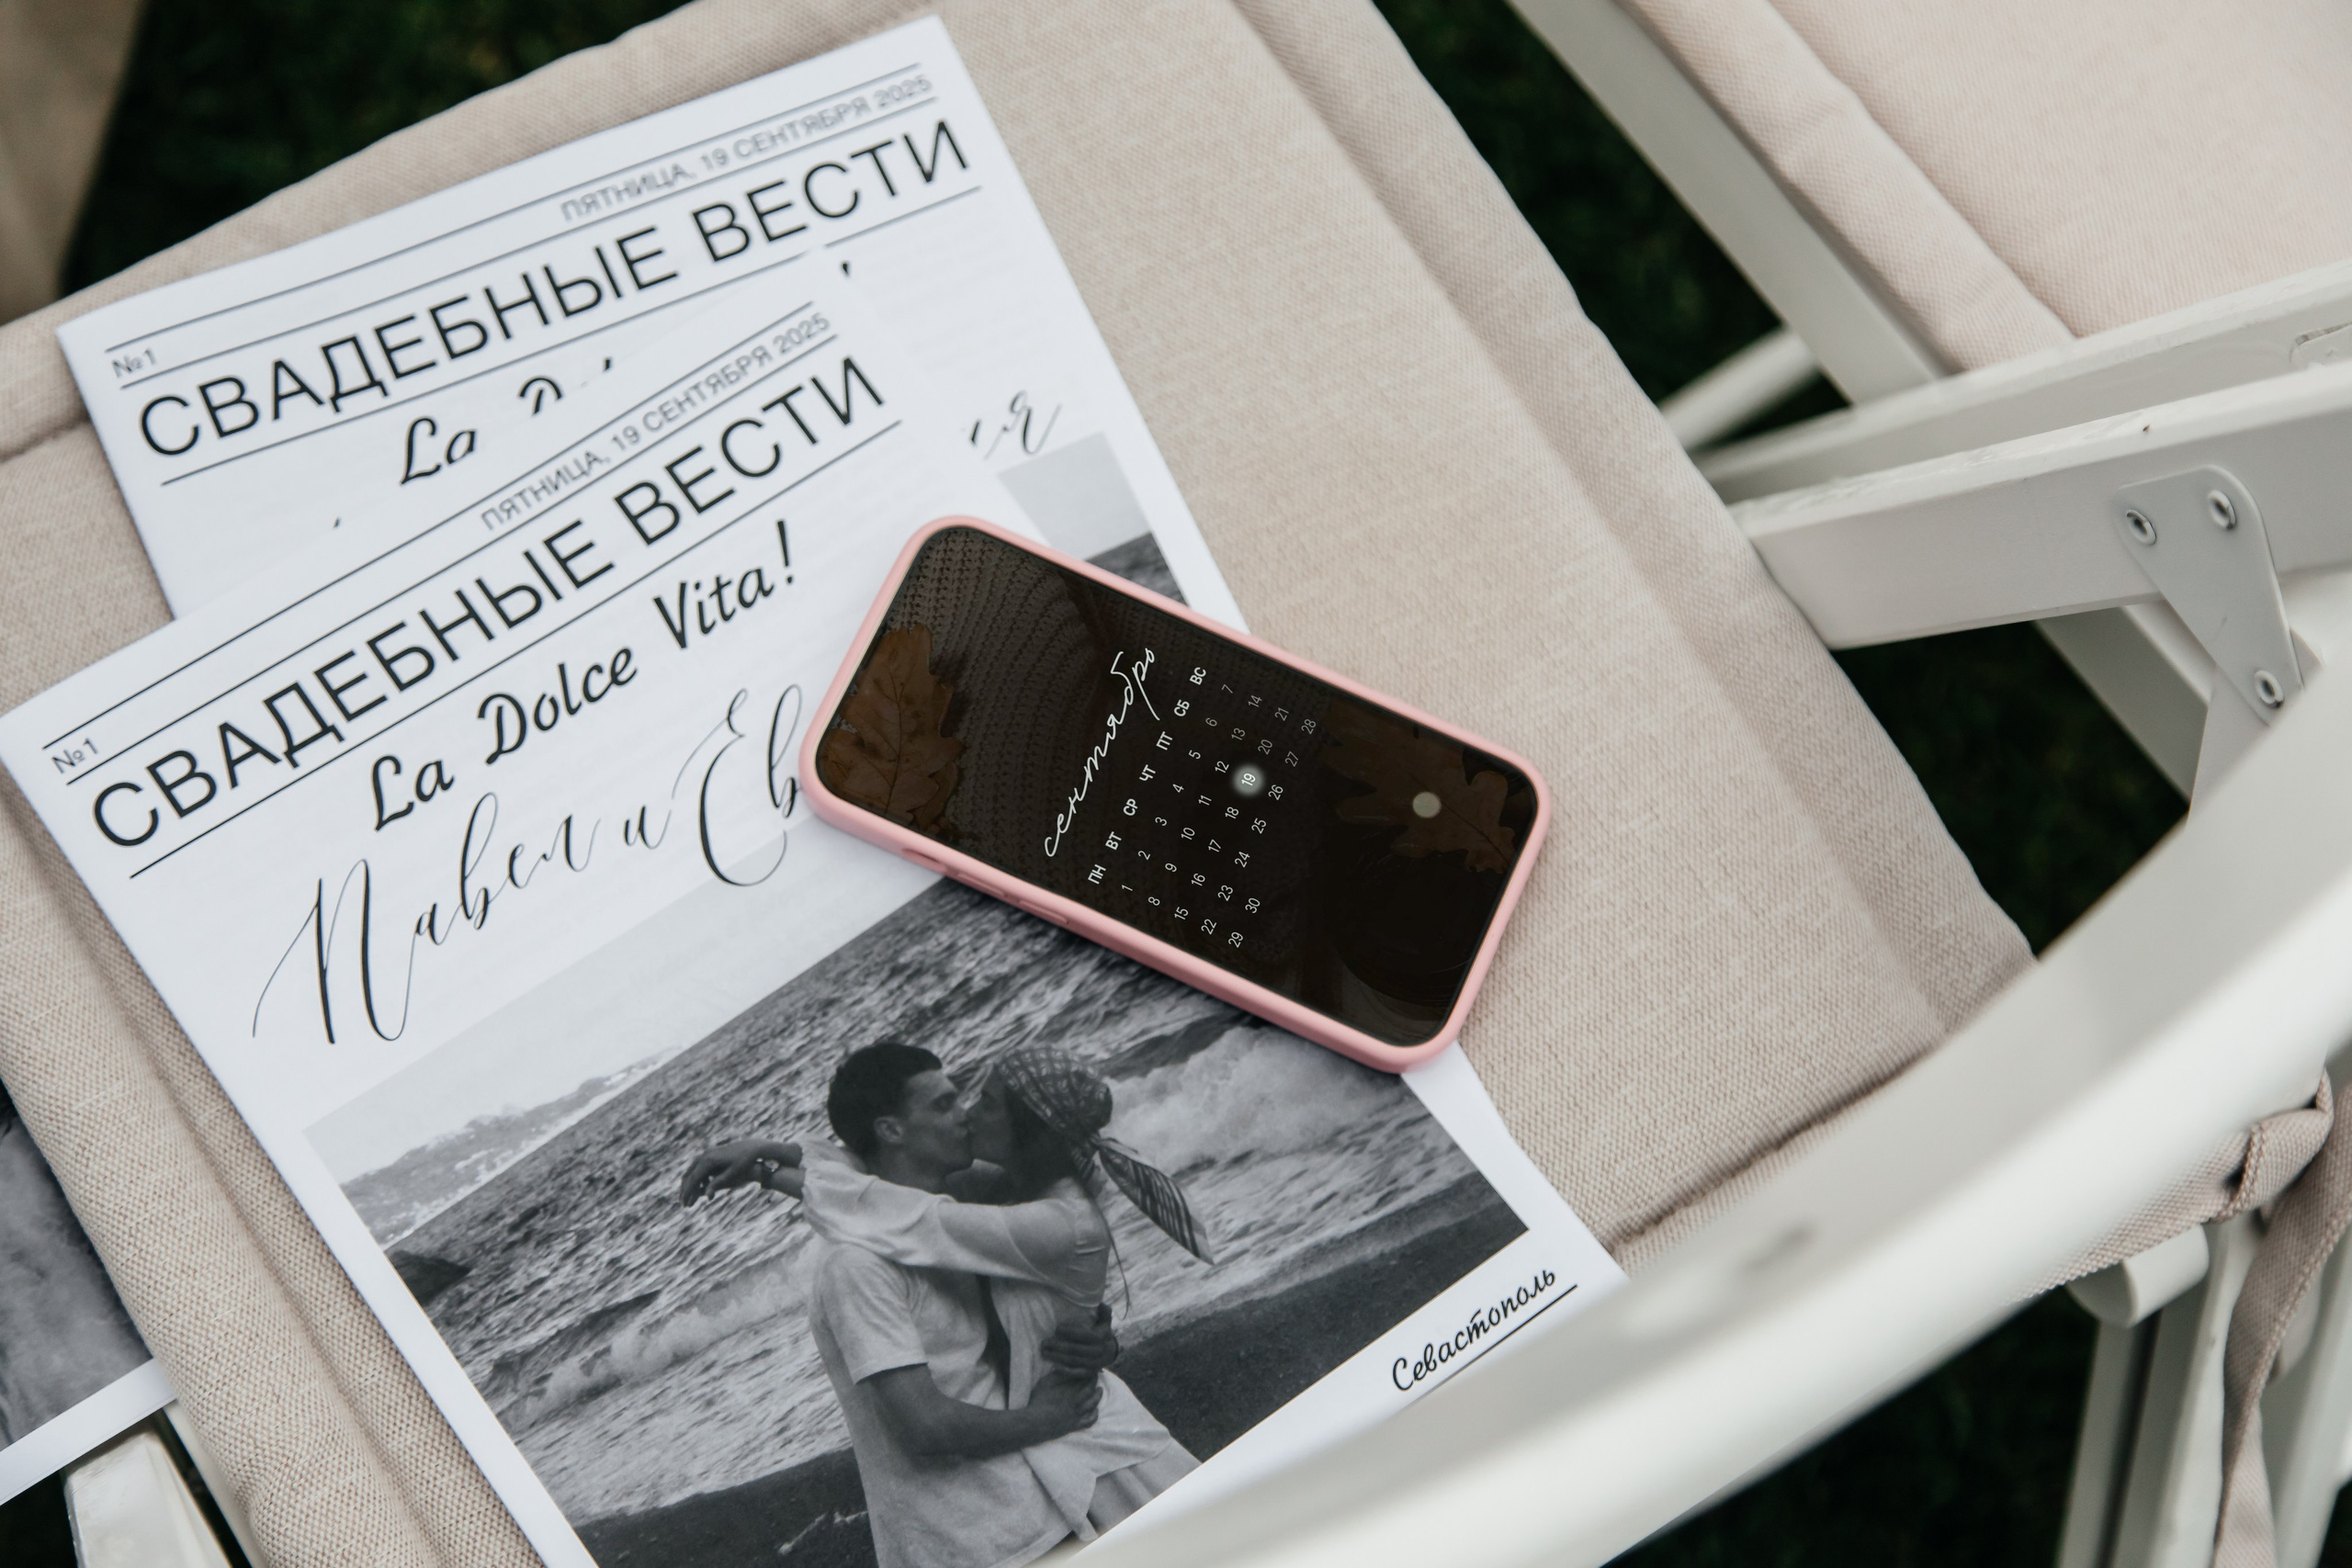 №1
ПЯТНИЦА, 19 СЕНТЯБРЯ 2025
СВАДЕБНЫЕ ВЕСТИ
La
№1
ПЯТНИЦА, 19 СЕНТЯБРЯ 2025
СВАДЕБНЫЕ ВЕСТИ
La Dolce Vita!
Павел и
Севастополь
сентябрь
ПН ВТ СР ЧТ ПТ СБ ВС
1 2 3 4 5 6 7
8 9 10 11 12 13 14
15 16 17 18 19 20 21
22 23 24 25 26 27 28
29 30